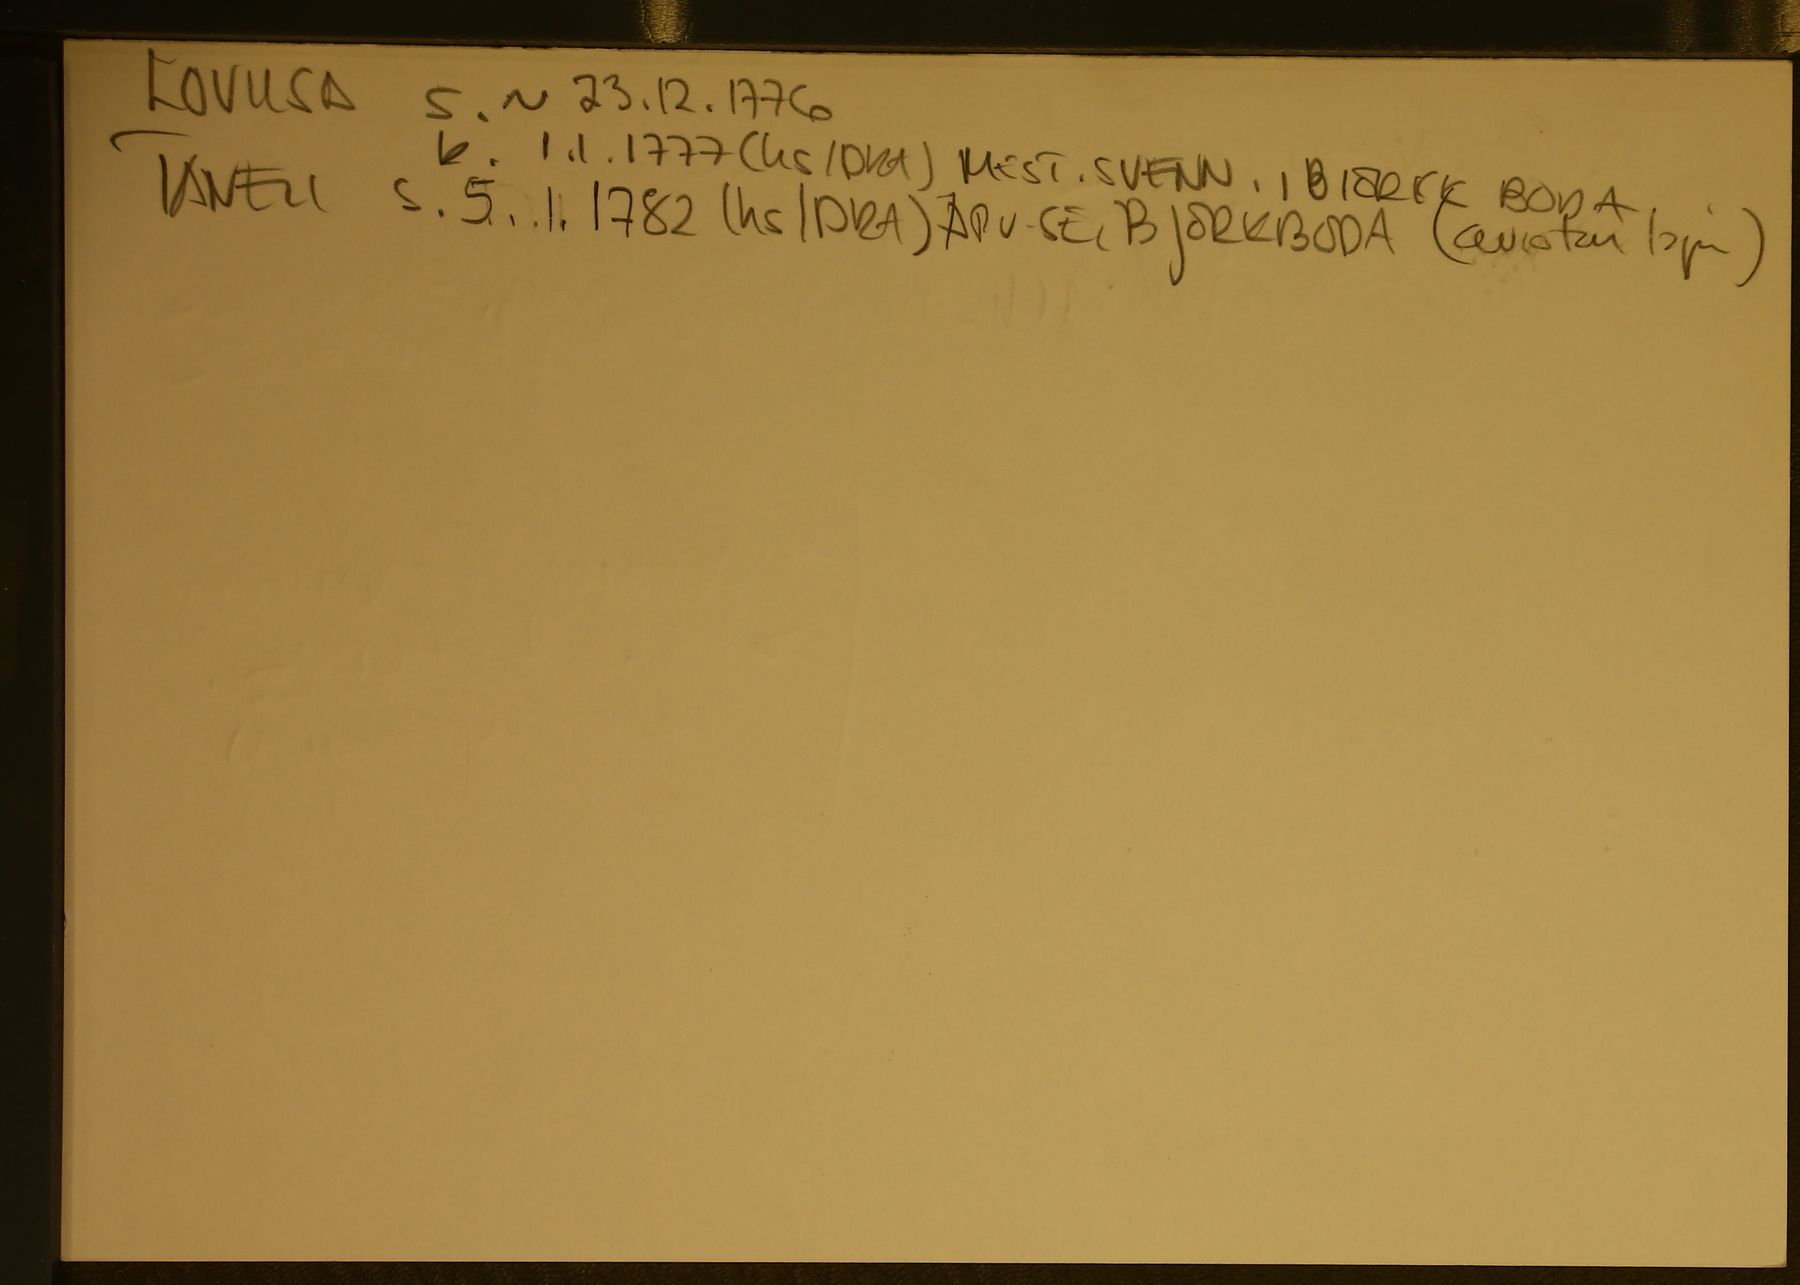 LOVIISA S. ~ 23.12.1776
k. 1.1.1777 (hs/DRA) MEST. SVENN. , BIÖRCK BODA
TANELI S. 5.1.1782 (hs/DRA) APU-SE, BJÖRKBODA (avioton lapsi)